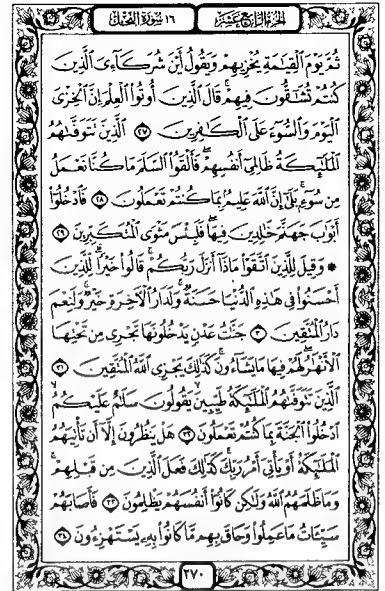 الجزء الرابع عشر
١٦ سورة النحل
ثُمَّ يَوْمَ ٱلْقِيَٰمَةِ يُخْزِيهِمْ وَيَقُولُ أَيْنَ شُرَكَآءِىَ ٱلَّذِينَ
كُنتُمْ تُشَٰٓقُّونَ فِيهِمْ قَالَ ٱلَّذِينَ أُوتُوا۟ ٱلْعِلْمَ إِنَّ ٱلْخِزْىَ
ٱلْيَوْمَ وَٱلسُّوٓءَ عَلَى ٱلْكَٰفِرِينَ ٢٧ ٱلَّذِينَ تَتَوَفَّىٰهُمُ
ٱلْمَلَٰٓئِكَةُ ظَالِمِىٓ أَنفُسِهِمْ فَأَلْقَوُا۟ ٱلسَّلَمَ مَا كُنَّا نَعْمَلُ
مِن سُوٓءٍۭ بَلَىٰٓ إِنَّ ٱللَّهَ عَلِيمٌۢ بِمَا كُنتُمْ تَعْمَلُونَ ٢٨ فَٱدْخُلُوٓا۟
أَبْوَٰبَ جَهَنَّمَ خَٰلِدِينَ فِيهَا فَلَبِئْسَ مَثْوَى ٱلْمُتَكَبِّرِينَ ٢٩
۞ وَقِيلَ لِلَّذِينَ ٱتَّقَوْا۟ مَاذَآ أَنزَلَ رَبُّكُمْ قَالُوا۟ خَيْرًا لِّلَّذِينَ
أَحْسَنُوا۟ فِى هَٰذِهِ ٱلدُّنْيَا حَسَنَةٌ وَلَدَارُ ٱلْءَاخِرَةِ خَيْرٌ وَلَنِعْمَ
دَارُ ٱلْمُتَّقِينَ ٣٠ جَنَّٰتُ عَدْنٍ يَدْخُلُونَهَا تَجْرِى مِن تَحْتِهَا
ٱلْأَنْهَٰرُ لَهُمْ فِيهَا مَا يَشَآءُونَ كَذَٰلِكَ يَجْزِى ٱللَّهُ ٱلْمُتَّقِينَ ٣١
ٱلَّذِينَ تَتَوَفَّىٰهُمُ ٱلْمَلَٰٓئِكَةُ طَيِّبِينَ يَقُولُونَ سَلَٰمٌ عَلَيْكُمُ
ٱدْخُلُوا۟ ٱلْجَنَّةَ بِمَا كُنتُمْ تَعْمَلُونَ ٣٢ هَلْ يَنظُرُونَ إِلَّآ أَن تَأْتِيَهُمُ
ٱلْمَلَٰٓئِكَةُ أَوْ يَأْتِىَ أَمْرُ رَبِّكَ كَذَٰلِكَ فَعَلَ ٱلَّذِينَ مِن قَبْلِهِمْ
وَمَا ظَلَمَهُمُ ٱللَّهُ وَلَٰكِن كَانُوٓا۟ أَنفُسَهُمْ يَظْلِمُونَ ٣٣ فَأَصَابَهُمْ
سَيِّـَٔاتُ مَا عَمِلُوا۟ وَحَاقَ بِهِم مَّا كَانُوا۟ بِهِۦ يَسْتَهْزِءُونَ ٣٤
٢٧٠